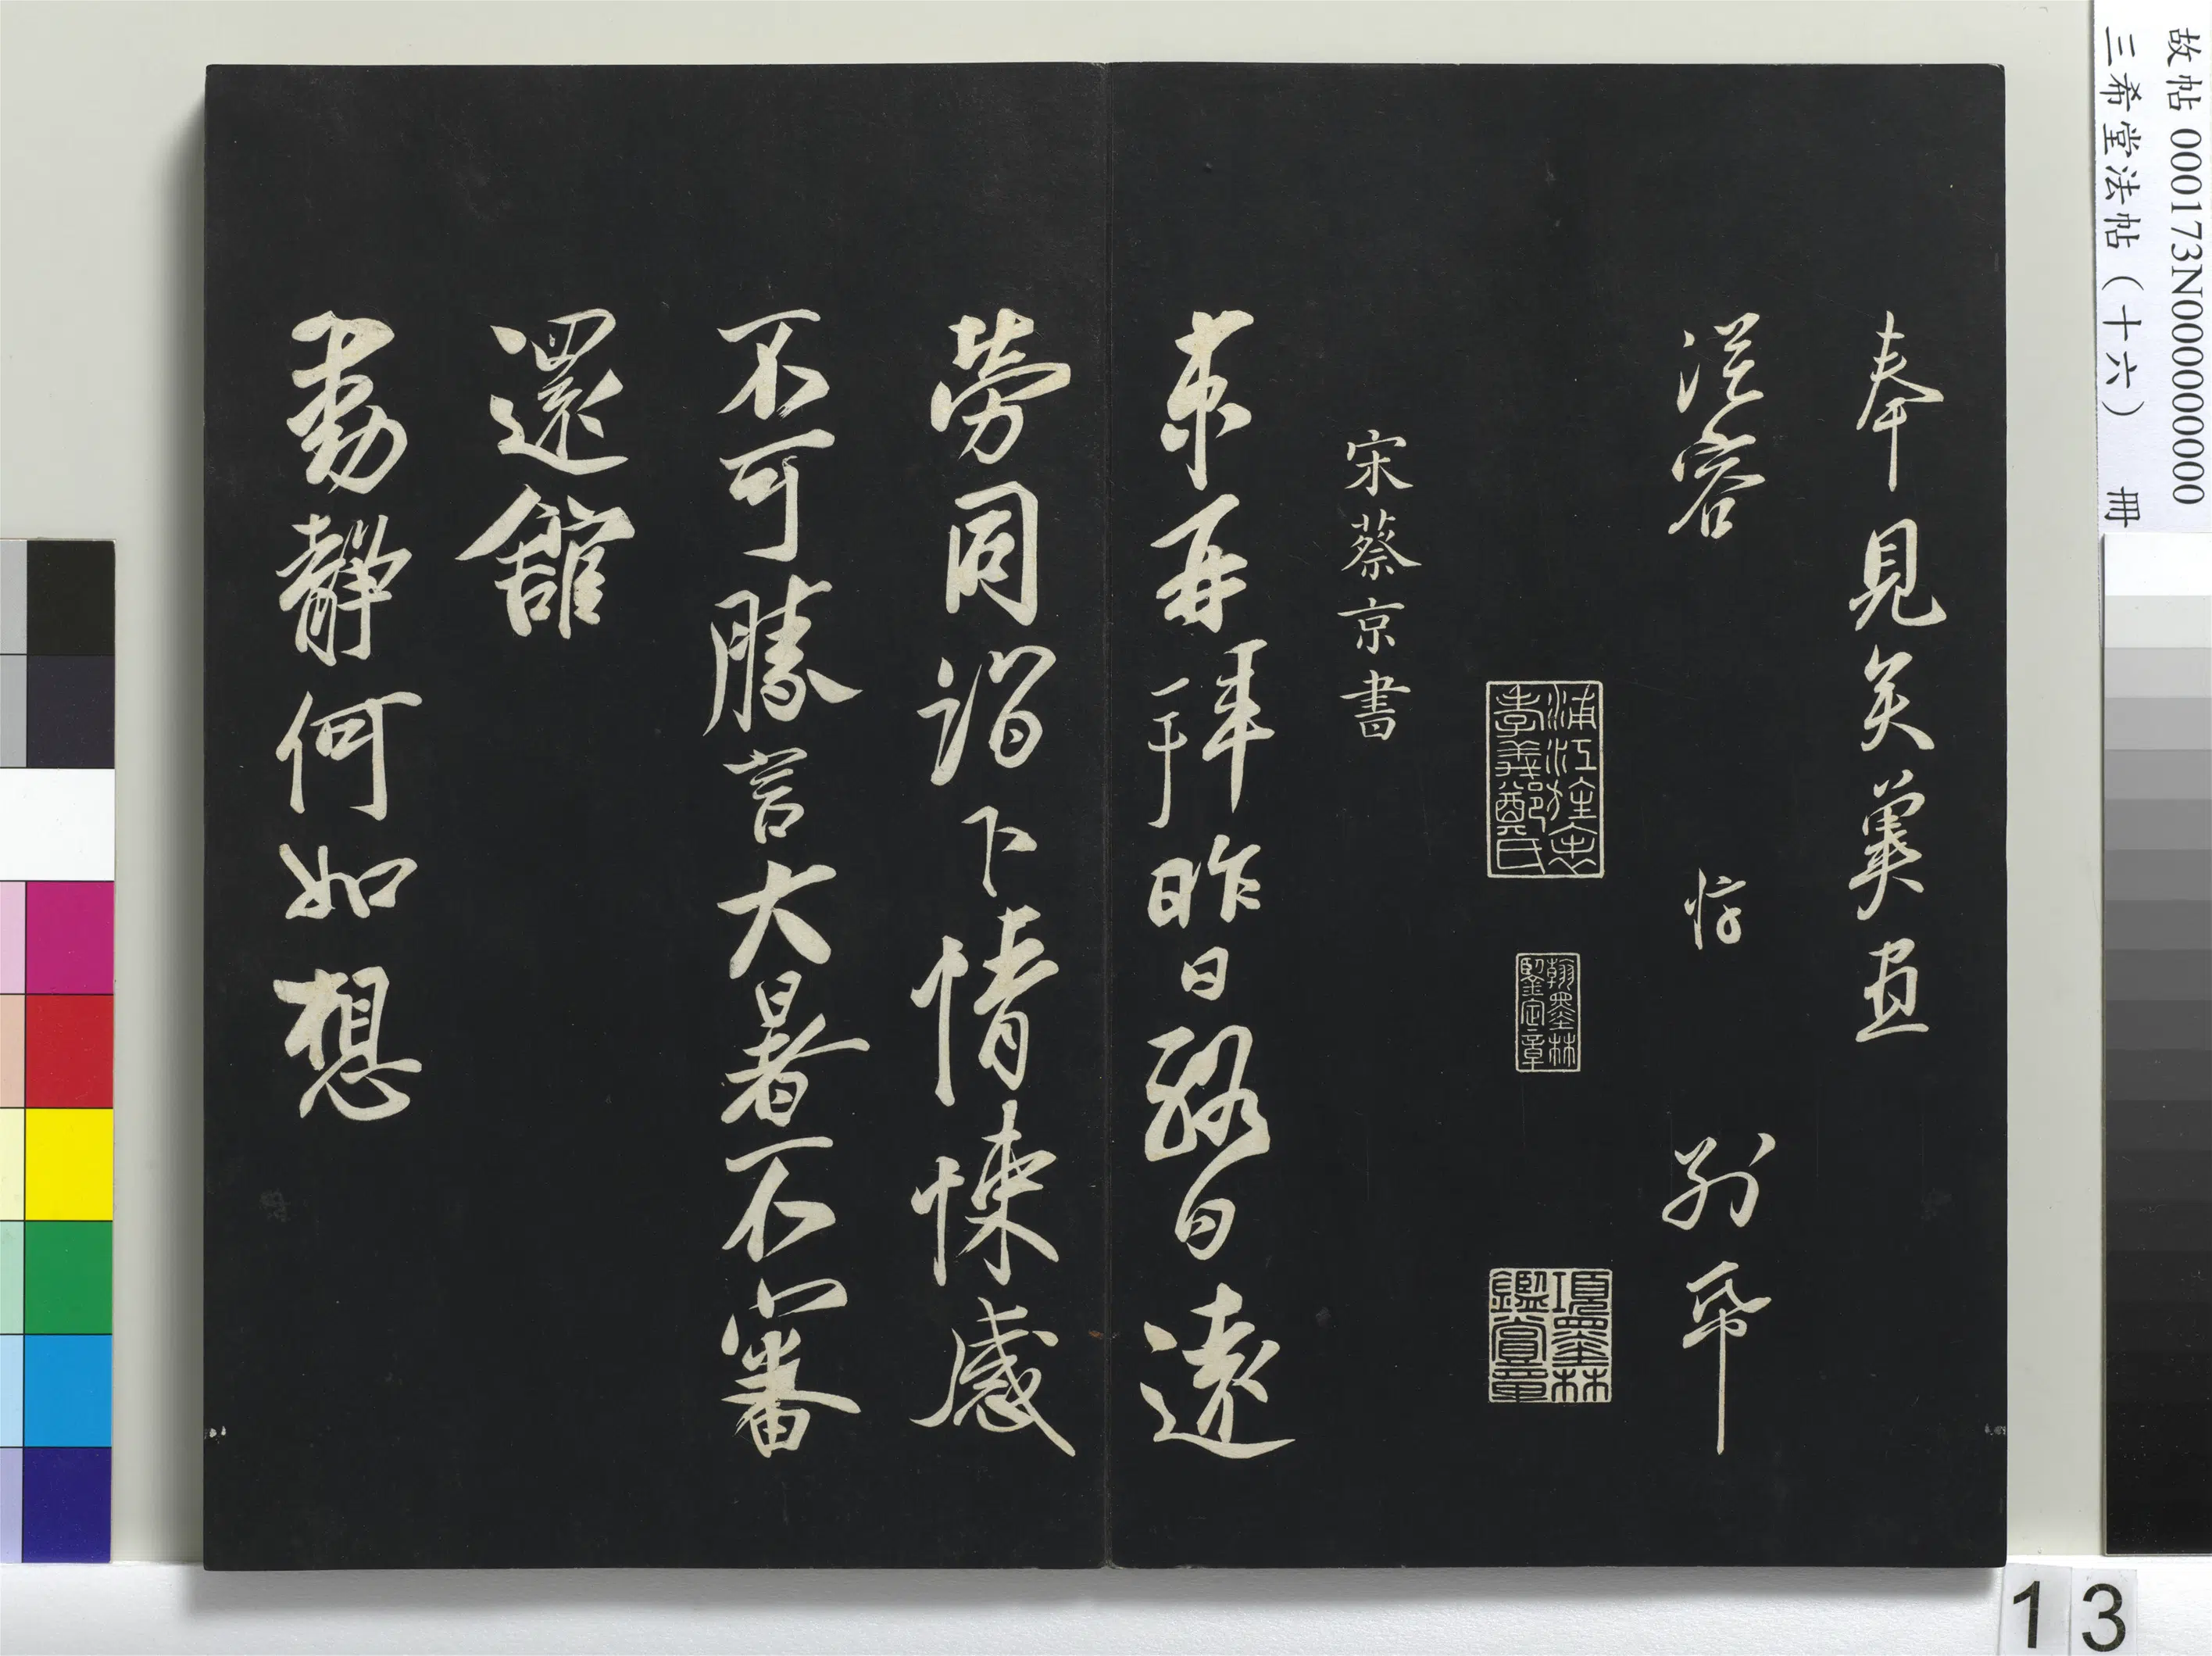 故帖 000173N000000000
三希堂法帖（十六） 冊
奉見矣冀盡
從容 惇 别帋
浦江旌忠
孝義鄭氏
翰墨林
鑒定章
項墨林
鑑賞章
宋蔡京書
京再拜昨日終日遠
勞同詣下情悚感
不可勝言大暑不審
還館
動靜何如想
13